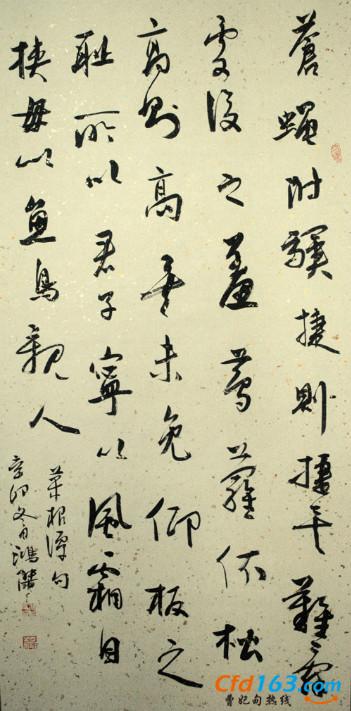 蒼蠅附驥捷則捷矣難辞
處後之羞蔦蘿依松
高則高矣未免仰扳之
耻所以君子寧以風霜自
挟毋以魚鳥親人
菜根譚句
辛卯冬月鴻傑
Cfd163.com
曹妃甸热线